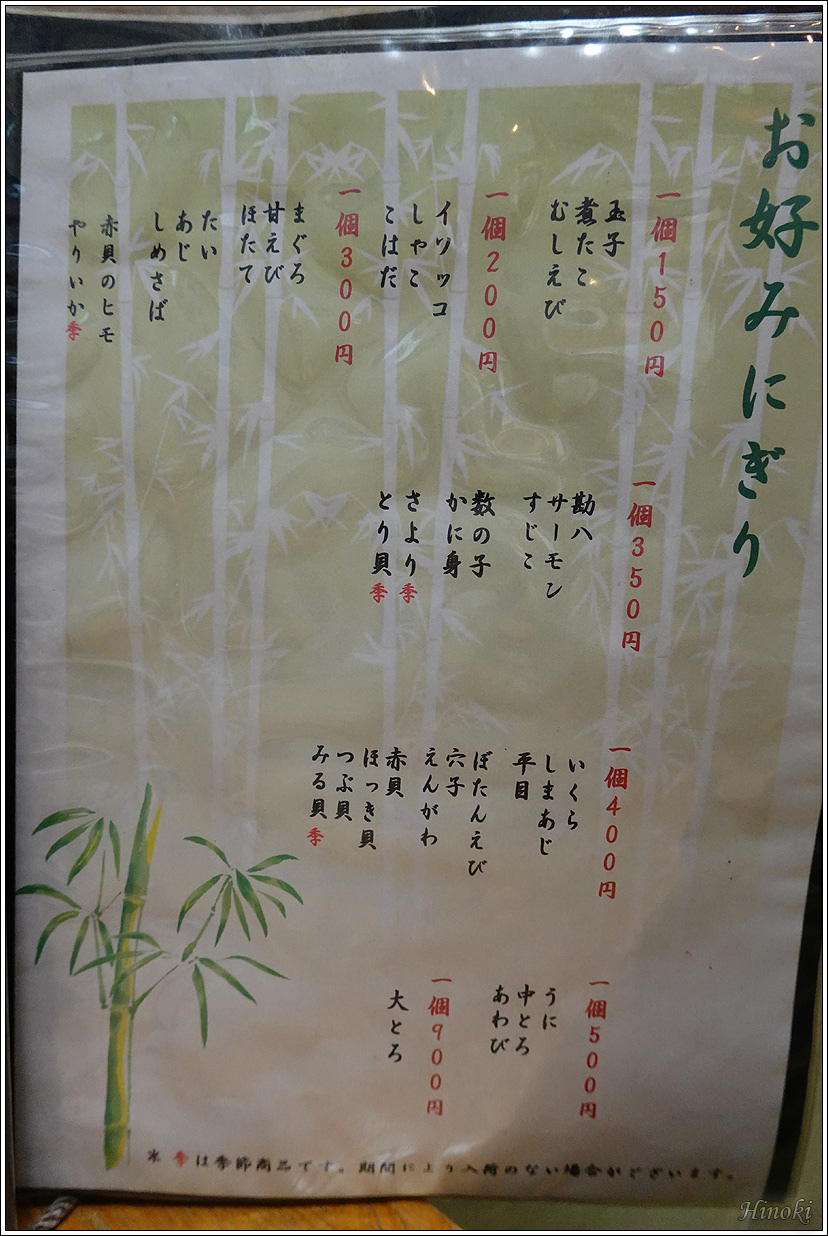 お好みにぎり
一個150円
玉子
煮たこ
むしえび
一個200円
イソッコ
しゃこ
こはだ
一個300円
まぐろ
甘えび
ほたて
たい
あじ
しめさば
赤貝のヒモ
やりいか季
一個350円
勘八
サーモン
すじこ
数の子
かに身
さより季
とり貝季
一個400円
いくら
しまあじ
平目
ぼたんえび
穴子
えんがわ
赤貝
ほっき貝
つぶ貝
みる貝季
一個500円
うに
中とろ
あわび
一個900円
大とろ
※季は季節商品です。期間により入荷のない場合がございます。
Hinoki